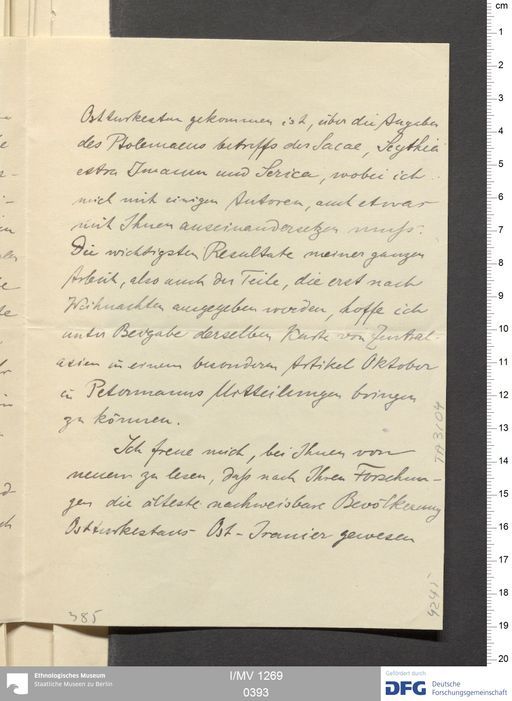 Ostturkestan gekommen ist, über die Angaben
des Ptolemaeus betreffs der Sacae, Skythia
extra Imaum und Serica, wobei ich
mich mit einigen Autoren, auch etwas
mit Ihnen auseinandersetzen muss.
Die wichtigsten Resultate meiner ganzen
Arbeit, also auch der Teile, die erst nach
Weihnachten ausgegeben werden, hoffe ich
unter Beigabe derselben Karte von Zentral-
asien in einem besonderen Artikel Oktober
in Petermanns Mitteilungen bringen
zu können.
Ich freue mich, bei Ihnen von
neuem zu lesen, daß nach Ihren Forschun-
gen die älteste nachweisbare Bevölkerung
Ostturkestans Ost-Iranier gewesen
385
4245
TA 3104
cm
1
2
3
4
5
6
7
8
9
10
11
12
13
14
15
16
17
18
19
20
Ethnologisches Museum
Staatliche Museen zu Berlin
I/MV 1269
0393
Gefördert durch
DFG Deutsche
Forschungsgemeinschaft